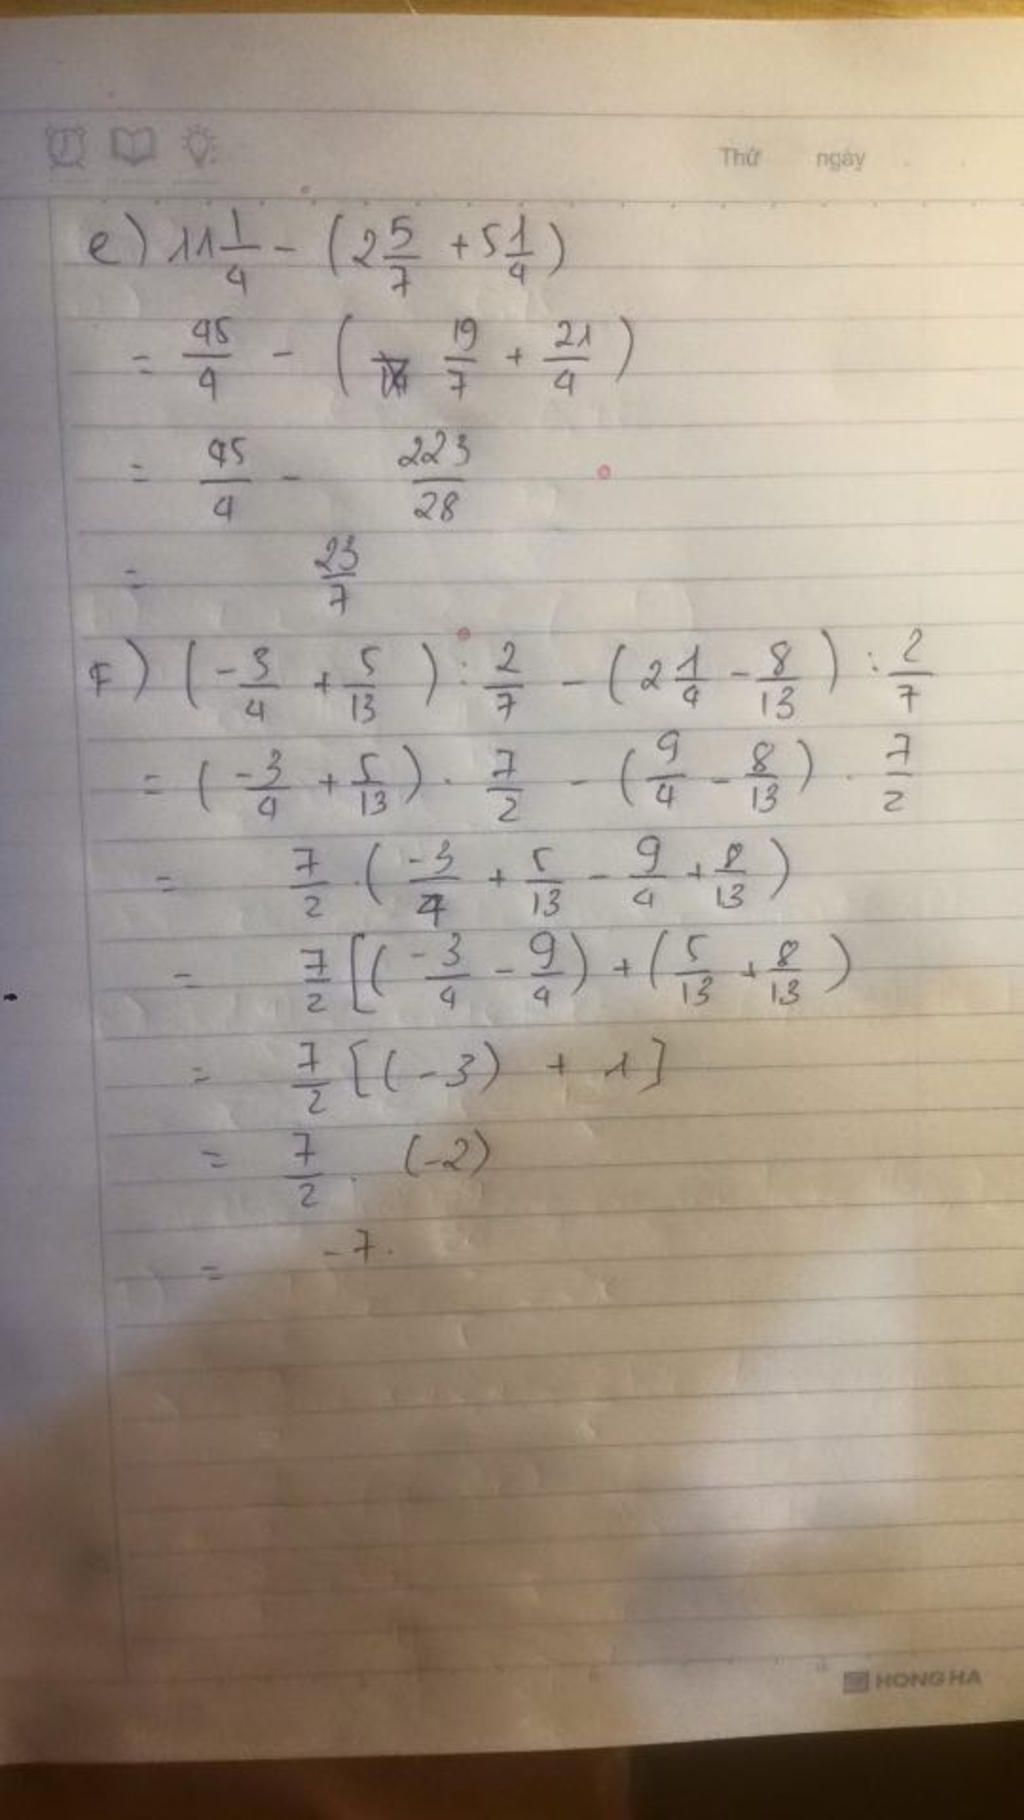 Thứ ngày
e) 11 1/4 - (2 5/7 + 5 1/4)
= 45/4 - ( 19/7 + 21/4 )
= 45/4 - 223/28
= 23/7
F) (-3/4 + 5/13) : 2/7 - (2 1/4 - 8/13) : 2/7
= (-3/4 + 5/13) . 7/2 - (9/4 - 8/13) . 7/2
= 7/2 . (-3/4 + 5/13 - 9/4 + 8/13)
= 7/2 [(-3/4 - 9/4) + (5/13 + 8/13)
= 7/2 [(-3) + 1]
= 7/2 . (-2)
= -7.
HONG HA